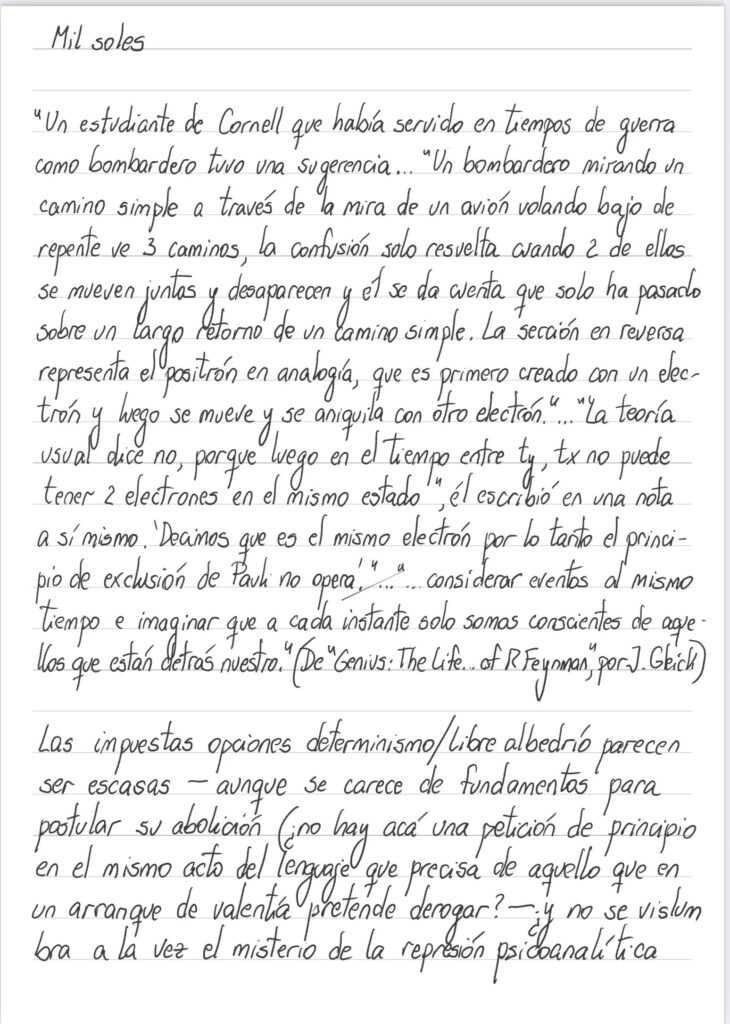 Mil soles
"Un estudiante de Cornell que había servido en tiempos de guerra
como bombardero tuvo una sugerencia... "Un bombardero mirando un
camino simple a través de la mira de un avión volando bajo de
repente ve 3 caminos, la confusión solo resuelta cuando 2 de ellas
se mueven juntas y desaparecen y él se da cuenta que solo ha pasado
sobre un largo retorno de un camino simple. La sección en reversa
representa el positrón en analogía, que es primero creado con un elec-
trón y luego se mueve y se aniquila con otro electrón."..."La teoría
usual dice no, porque luego en el tiempo entre ty, tx no puede
tener 2 electrones en el mismo estado", él escribió en una nota
a sí mismo. 'Decimos que es el mismo electrón por lo tanto el princi-
pio de exclusión de Pauli no opera'."..."... considerar eventos al mismo
tiempo e imaginar que a cada instante solo somos conscientes de aque-
llos que están detrás nuestro." (De "Genius: The Life.. of R Feynman", por J. Gleick)
Las impuestas opciones determinismo/Libre albedrío parecen
ser escasas — aunque se carece de fundamentos para
postular su abolición (¿no hay acá una petición de principio
en el mismo acto del lenguaje que precisa de aquello que en
un arranque de valentía pretende derogar? — ¿y no se vislum
bra a la vez el misterio de la represión psicoanalítica